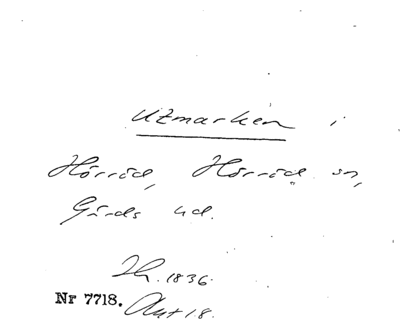 Utmarken i
Hörröd, Hörröds sn,
Gärds hd.
Sk. 1836.
Nr 7718. Akt 18.